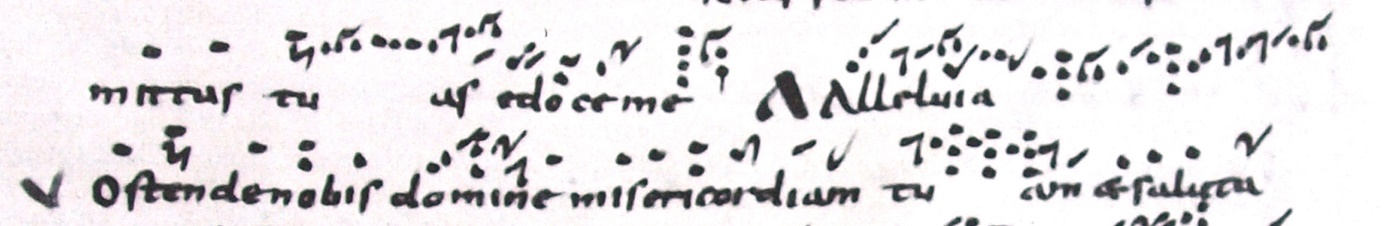 mittas tu as edoce me A Alleluia
V Ostende nobis domine misericordiam tu am & saluta